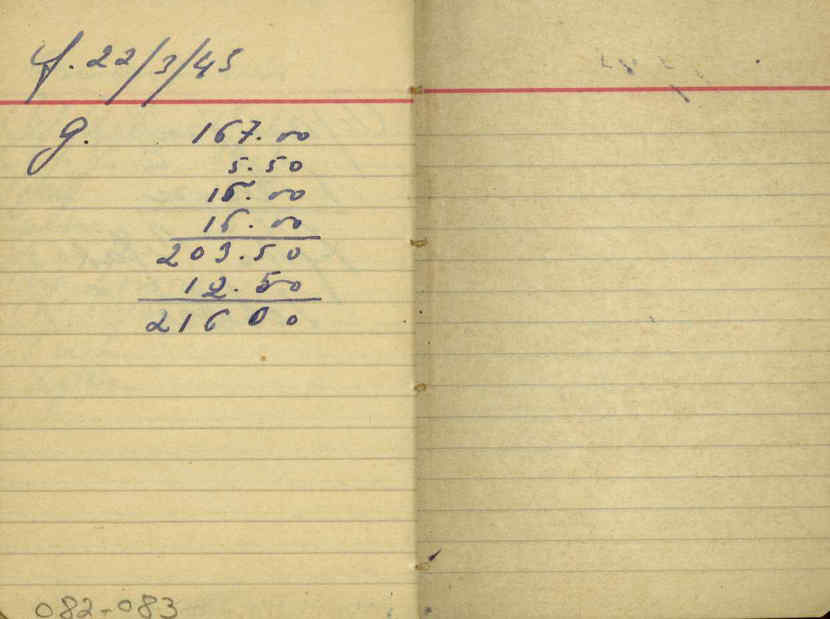 f. 22/3/45
g. 167.00
5.50
15.00
16.00
203.50
12.50
216 00
082-083